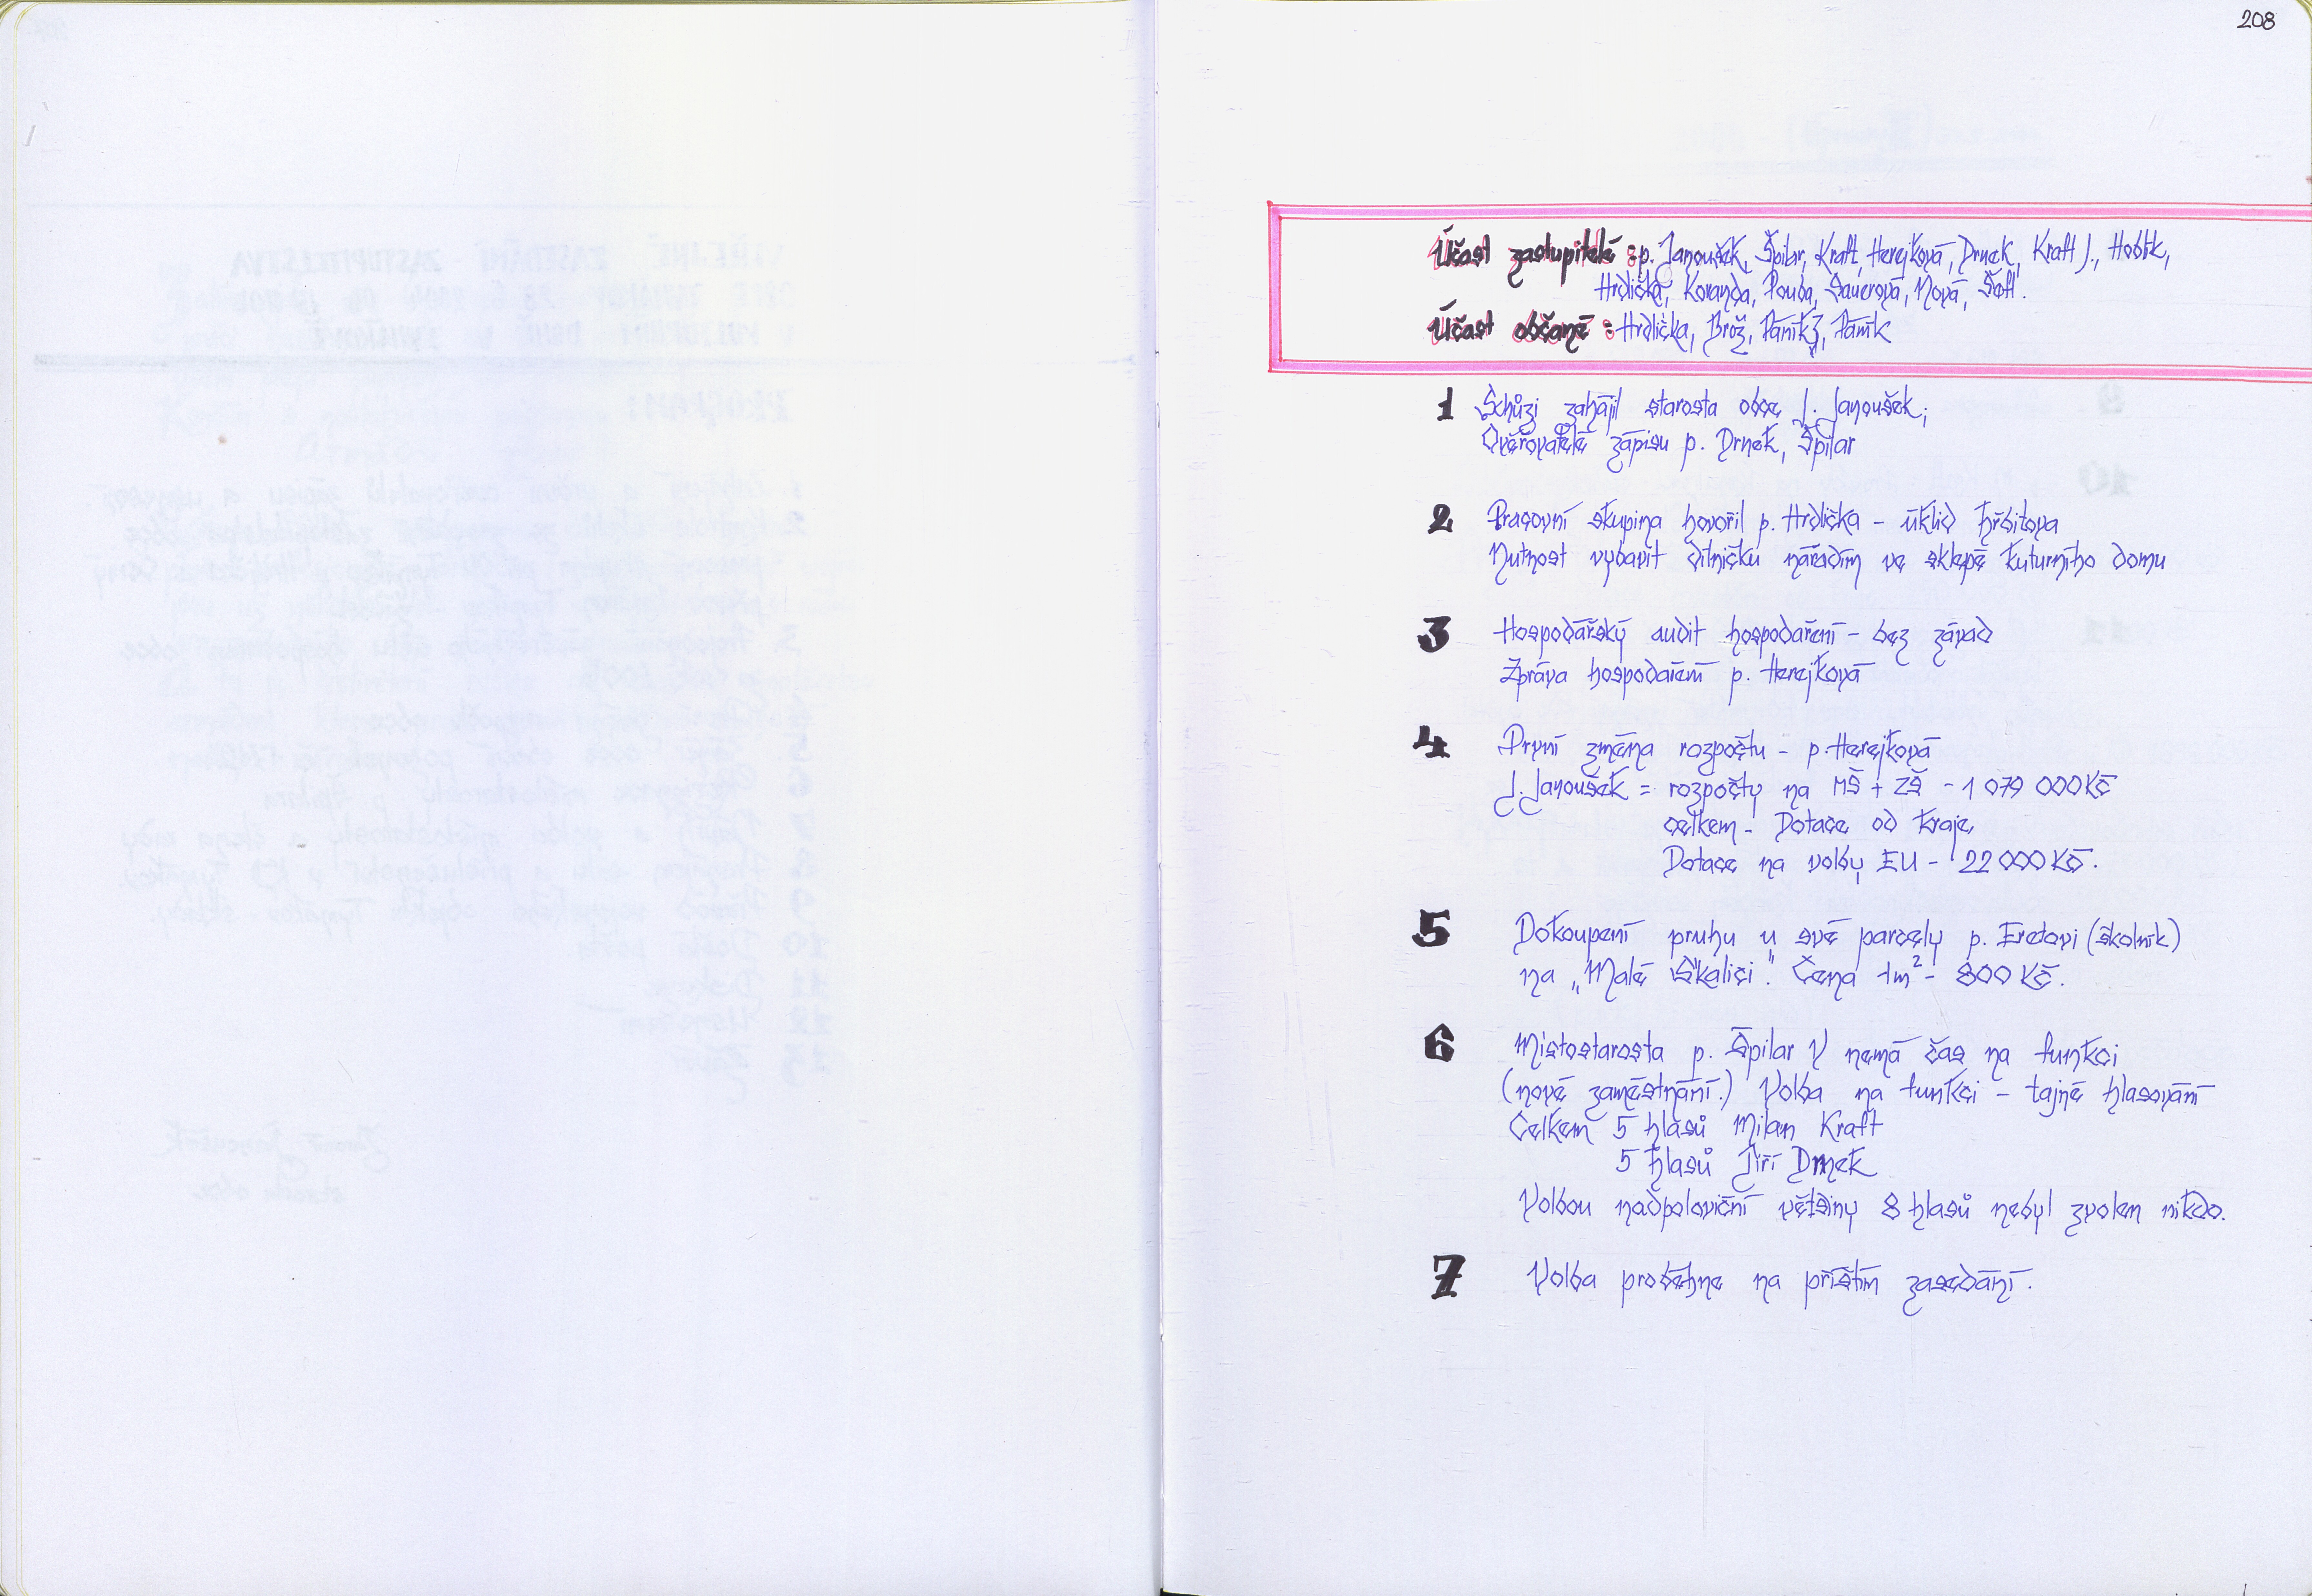 208
Účast zastupitelé : p. Janoušek, Špilar, Kraft, Herejková, Drnek, Kraft J., Hoblík,
Hrdlička, Koranda, Pouba, Sauerová, Nová, Šotl.
Účast občané : Hrdlička, Brož, Páník, Páník
1 Schůzi zahájil starosta obce J. Janoušek,
Ověřovatelé zápisu p. Drnek, Špilar
2 Pracovní skupina hovořil p. Hrdlička - úklid hřbitova
Nutnost vybavit dílničku nářadím ve sklepě kuturního domu
3 Hospodářský audit hospodaření - bez závad
Zpráva hospodaření p. Herejková
4 První změna rozpočtu - p. Herejková
J. Janoušek = rozpočty na MŠ + ZŠ - 1 079 000 Kč
celkem - Dotace od kraje,
Dotace na volby EU - 22 000 Kč.
5 Dokoupení pruhu u své parcely p. Eretovi (školník)
na „Malé Skalici." Cena 1m² - 800 Kč.
6 Místostarosta p. Špilar V nemá čas na funkci
(nové zaměstnání.) Volba na funkci - tajné hlasování
Celkem 5 hlasů Milan Kraft
5 hlasů Jiří Drnek
Volbou nadpoloviční většiny 8 hlasů nebyl zvolen nikdo.
7 Volba proběhne na příštím zasedání.